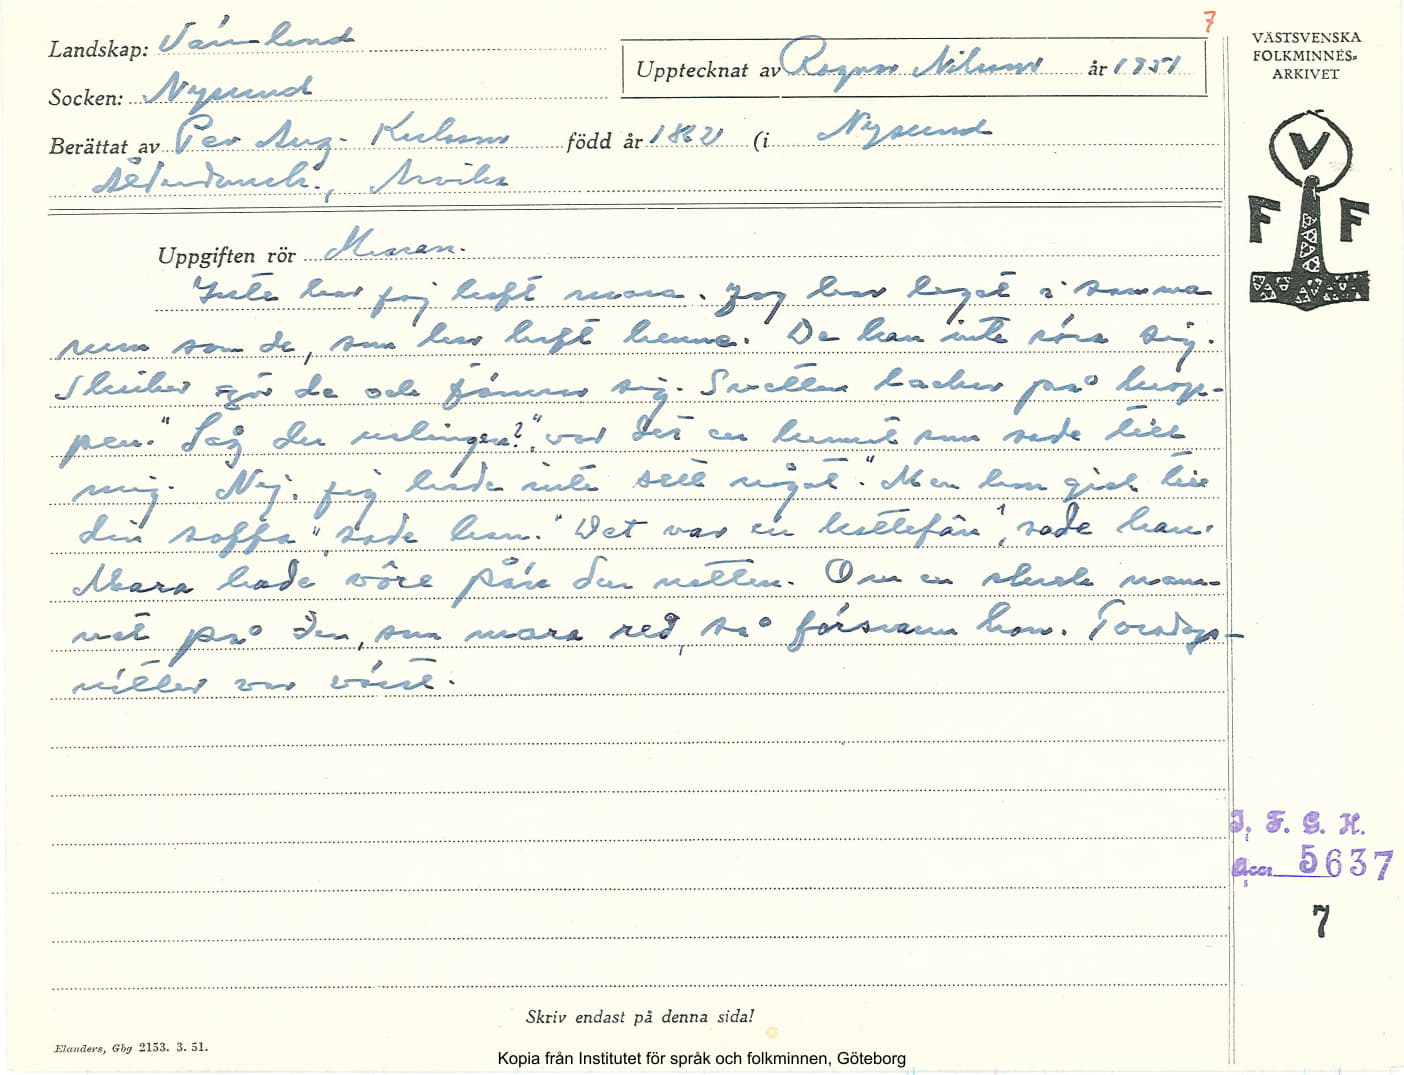 7
Landskap: Värmland
Upptecknat av Ragnar Nilsson år 1951
VÄSTSVENSKA
FOLKMINNES-
ARKIVET
Socken: Nysund
Berättat av Per Aug. Karlsson född år 1862 (i Nysund
Ålderdomsh., Arvika
V
F F
Uppgiften rör Maran.
Inte har jag haft mara. Jag har legat i samma
rum som de, som har haft henne. De kan inte röra sig.
Skriker gör de och jämrar sig. Svetten lacker på krop-
pen. "Såg du urlingen?", var det en kunnit som sade till
mig. Nej, jag hade inte sett något. "Men hon gick till
din soffa", sade han. "Det var en kattefän", sade han.
Mara hade vôre på'n den natten. Om en skrek nam-
net på den, som mara red, så försvann hon. Torsdags-
nätter var värst.
I. F. G. H.
Acc. 5637
7
Skriv endast på denna sida!
Elanders, Gbg 2153. 3. 51.
Kopia från Institutet för språk och folkminnen, Göteborg